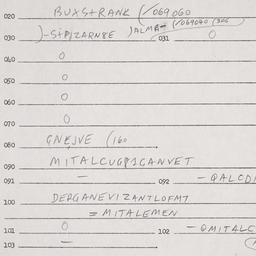 020 BUXSTRANK (/069060
(/069040 (306
030 )-STP/ZARN8E )ALMA- 031 0
040 0
050 0
060 0
070 0
080 GNEJVE (160
090 MITALCUGP1GANVET
091 — 092 - QALCD
100 DERGANEVIZANTLOFM7
= MITALEMEN
101 0 102 - OMITALC
103 —